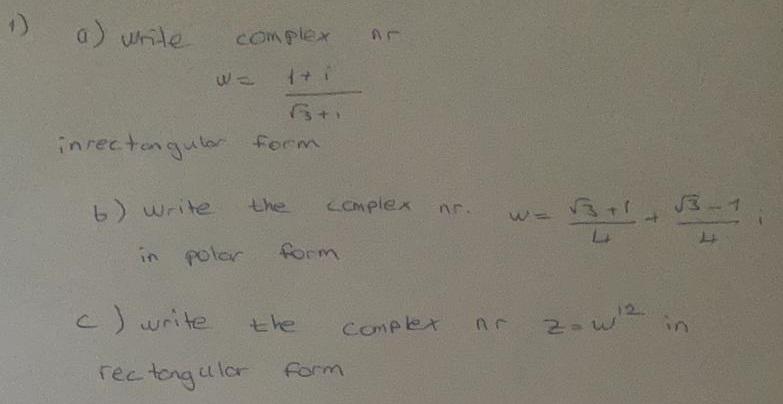 1) a) write complex nr
w = 1+i / √3+i
in rectangular form
b) write the complex nr. w = √3+1 / 4 + √3-1 / 4 i
in polar form
c) write the complex nr z = w¹² in
rectangular form